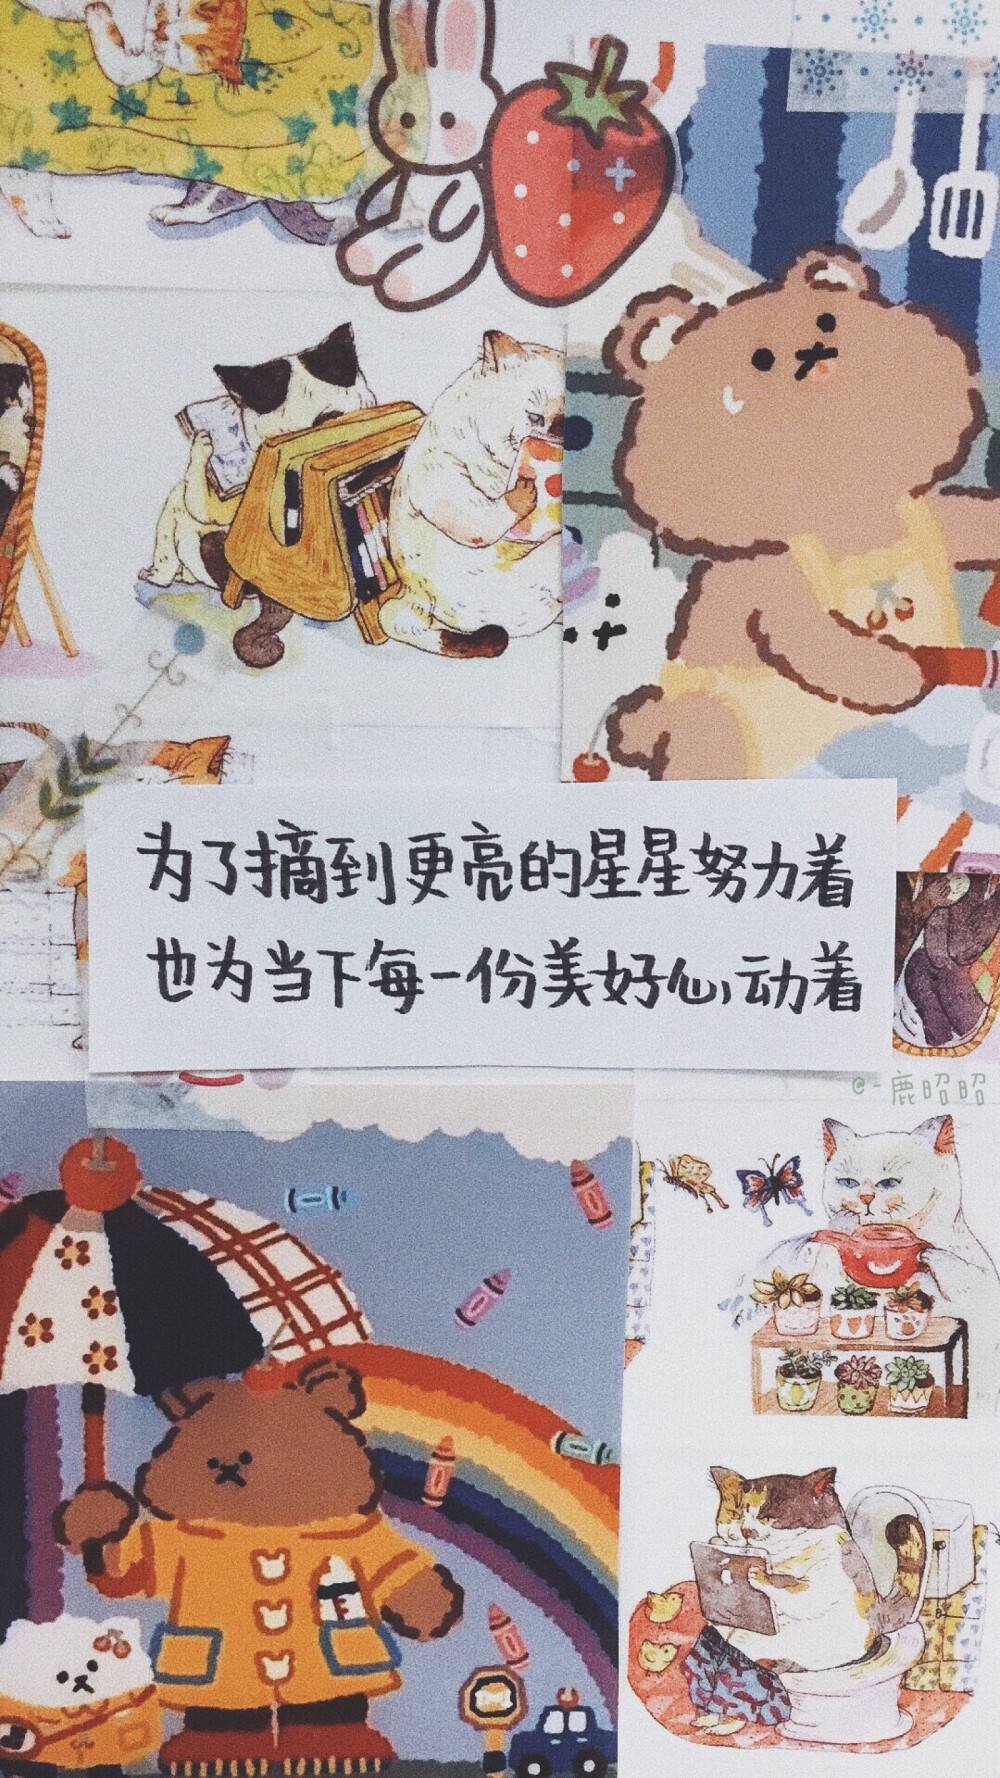 为了摘到更亮的星星努力着
也为当下每一份美好心动着
@-鹿昭昭